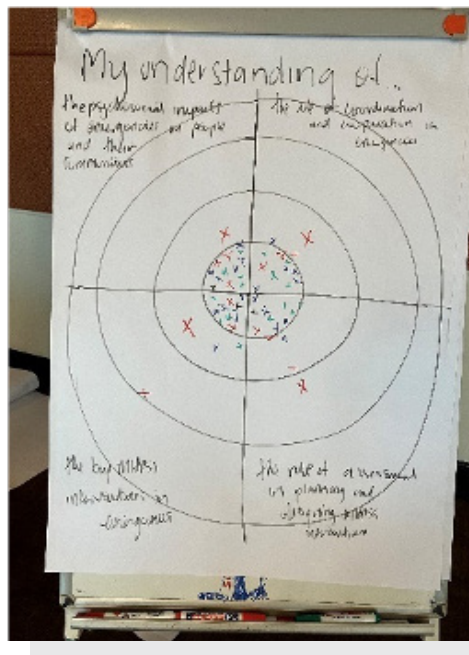 My understanding of...
the psychosocial impacts
of emergencies on people
and their
communities
the role of coordination
and in
emergencies
the key MHPSS
interventions in
emergencies
the role of assessment
in planning and
designing MHPSS
interventions